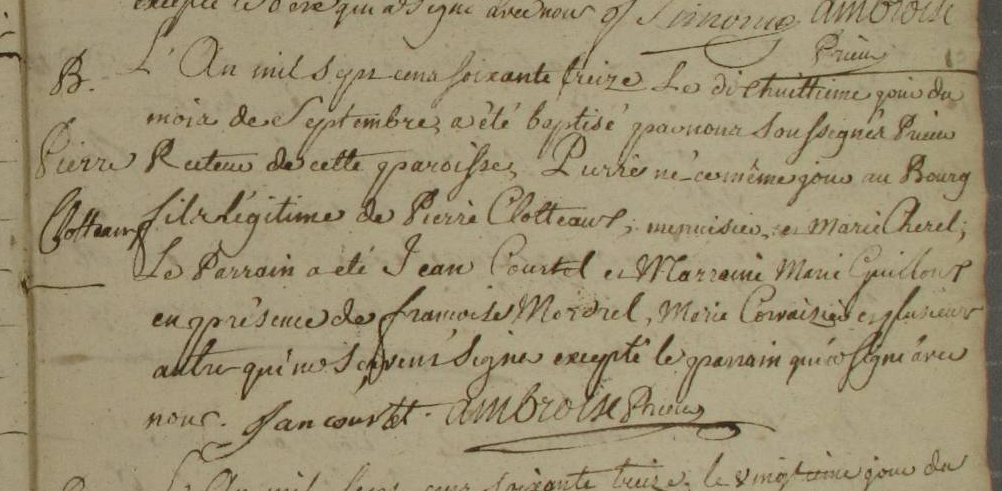 excepté le père qui a signé avec nous Ambroise
Prieur
B. L'An mil sept cens soixante treize Le dixhuittieme jour du
mois de Septembre, a été baptisé par nous Soussignés Prieur
Pierre Recteur de cette paroisse, Pierre né ce même jour au Bourg
Clotteaux fils légitime de Pierre Clotteaux, menuisier, et Marie Cherel;
Le Parrain a été Jean Courtel et Marraine Marie Guilloux
en présence de françoise Mordrel, Marie Corvaisier et plusieurs
autres qui ne sçavent signer excepté le parrain qui a signé avec
nous. Jan courtel. Ambroise Prieur
L'An mil sept cens soixante treize, le vingtieme jour du